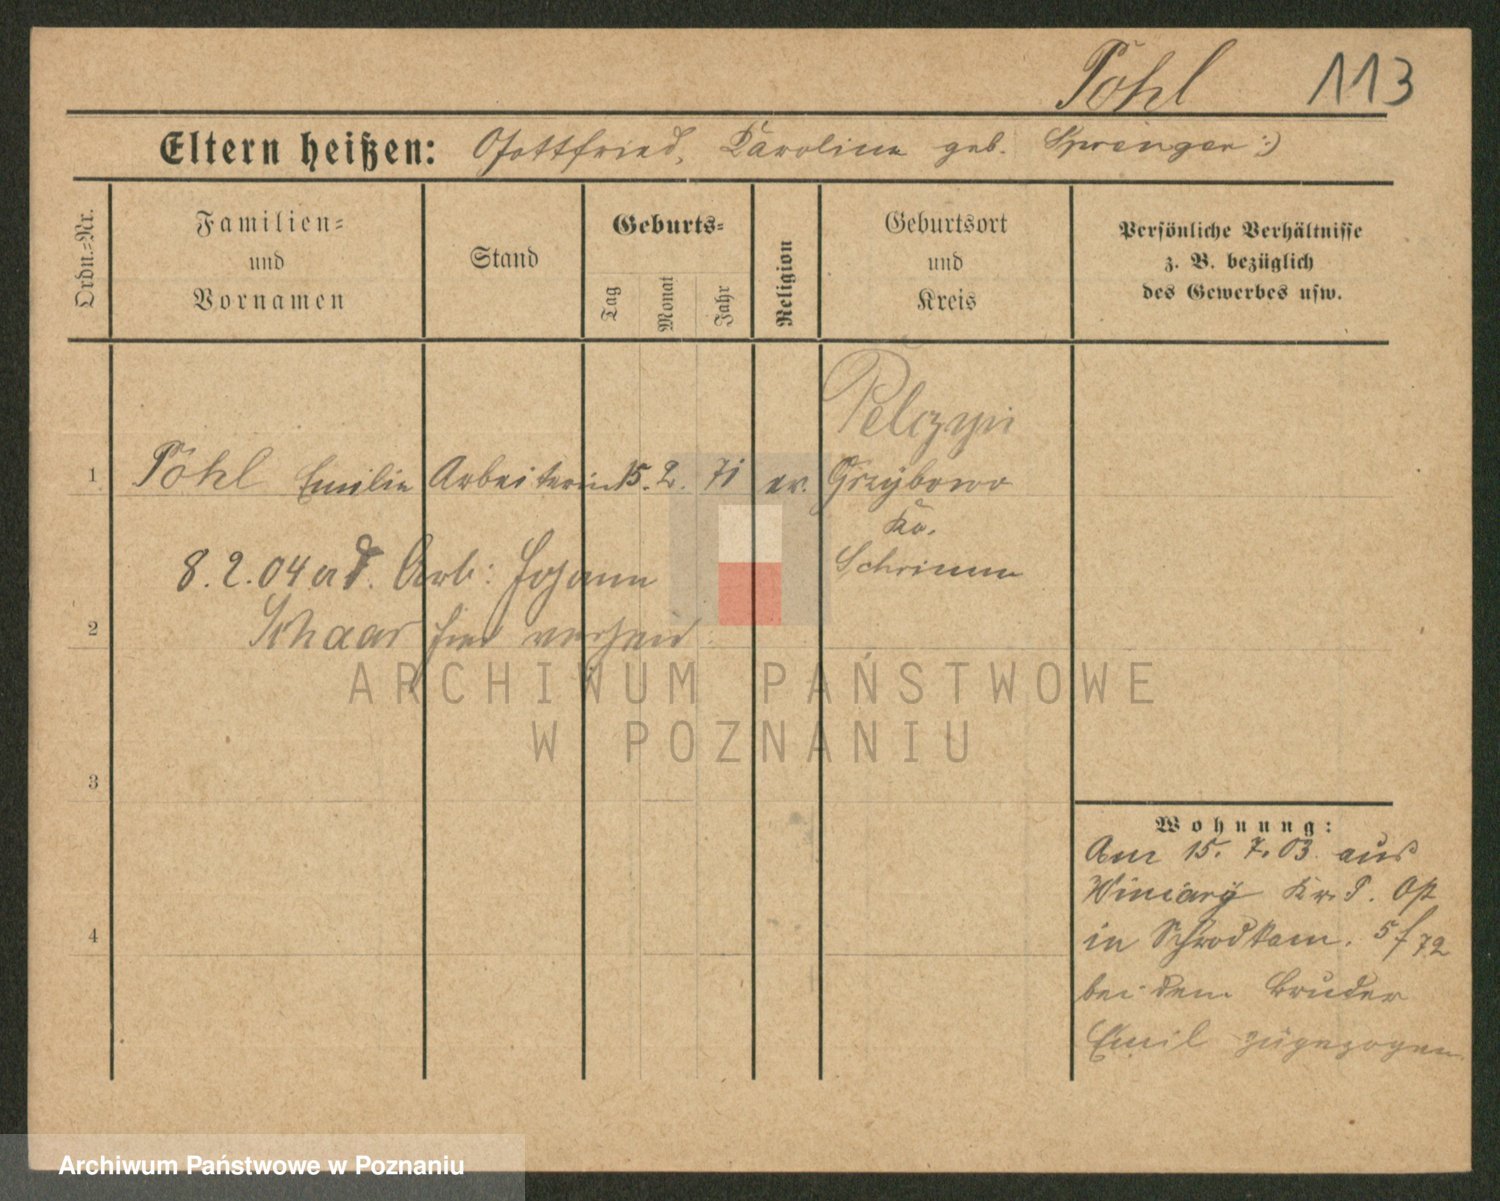 Pohl 113
Eltern heißen: Gottfried, Karoline geb. Springer :)
Ordn.=Nr.
Familien=
und
Vornamen
Stand
Geburts=
Tag
Monat
Jahr
Religion
Geburtsort
und
Kreis
Persönliche Verhältnisse
z. B. bezüglich
des Gewerbes usw.
Pelczyn
1 Pohl Emilie Arbeiterin 15. 2. 71 ev. Grzybowo
Kr.
Schrimm
8. 2. 04 Arb: Johann
2 Schaar hier
3
4
Wohnung:
Am 15. 7. 03 aus
Winiary Kr. P. Ost
in Schrodkam. 5/72
bei dem Bruder
Emil zugezogen
ARCHIWUM PAŃSTWOWE
W POZNANIU
Archiwum Państwowe w Poznaniu